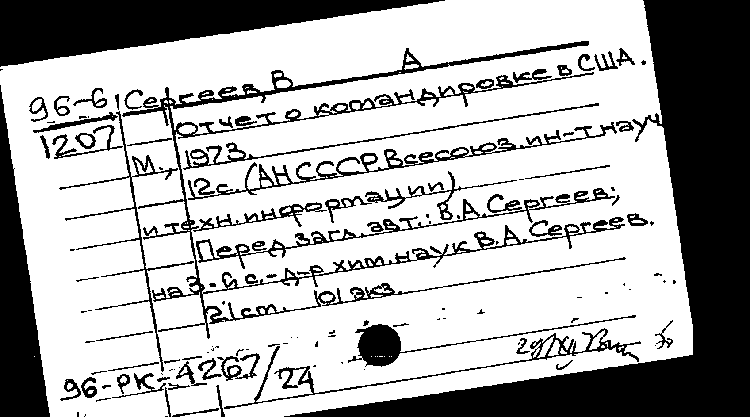 96-6 Сергеев, В А
1207 Отчет о командировке в США.
М., 1973.
12с. (АН СССР. Всесоюз. ин-т науч
и техн. информации)
Перед загл. авт.: В.А. Сергеев;
на 3-6 с. - д-р хим. наук В.А. Сергеев.
21 ст. 101 экз.
96-РК-4267/24